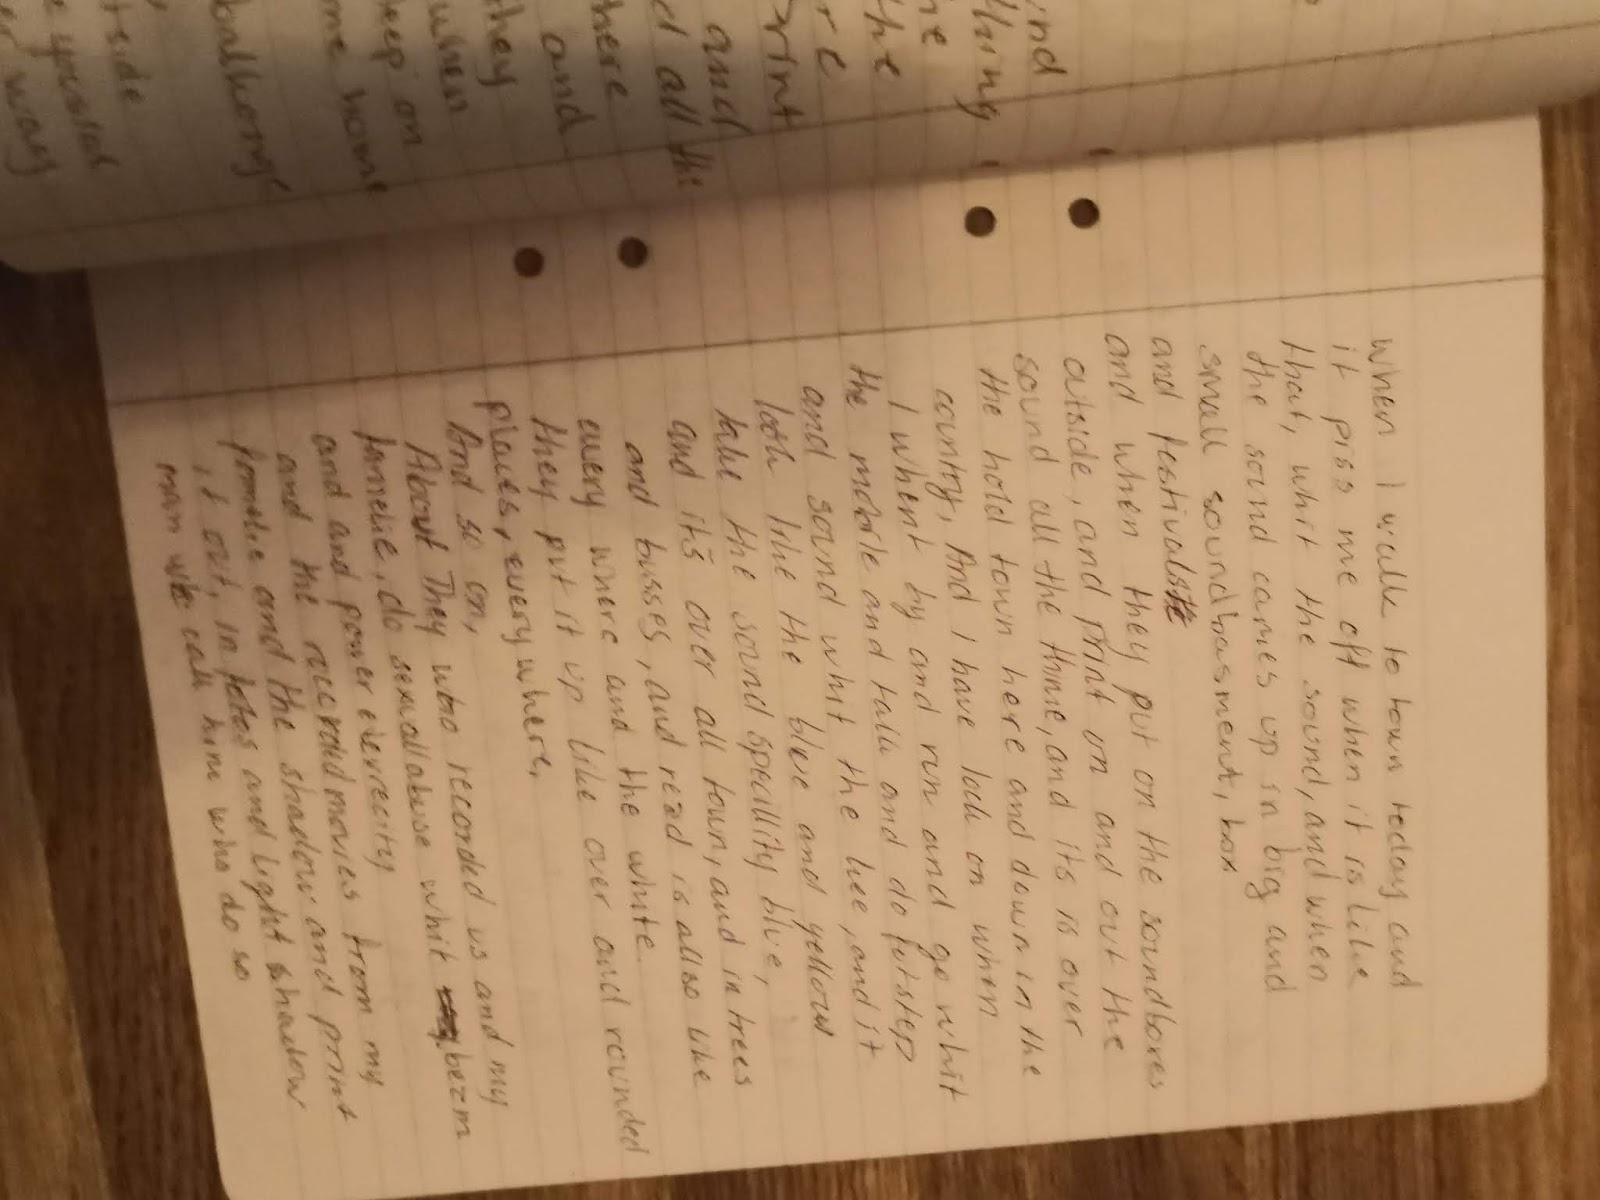 ind
thing
he
the
re
print
and
d all the
there
and
they
when
eep on
me home
balkonge
tside
e yustal
er way
When I walk to town today and
it piss me off when it is like
that, whit the sound, and when
the sound cames up in big and
small soundbasment, box
and festivals
and when they put on the soundboxes
outside, and print on and out the
sound all the thime, and its is over
the hold town here and down in the
country, And I have look on when
I whent by and run and go whit
the mobile and talk and do futstep
and sound whit the hee, and it
look like the blue and yellow
take the sound specillity blue,
and its over all town, and in trees
and busses, and read is allso like
every where and the white.
they put it up like over and rounded
places, every where,
And so on,
About They who recorded us and my
familie, do sexuallabuse whit bezm
and and power elevrecity
and the recorded movies from my
familie and the shadow and print
it out, in fotos and light shadow
man we call him who do so